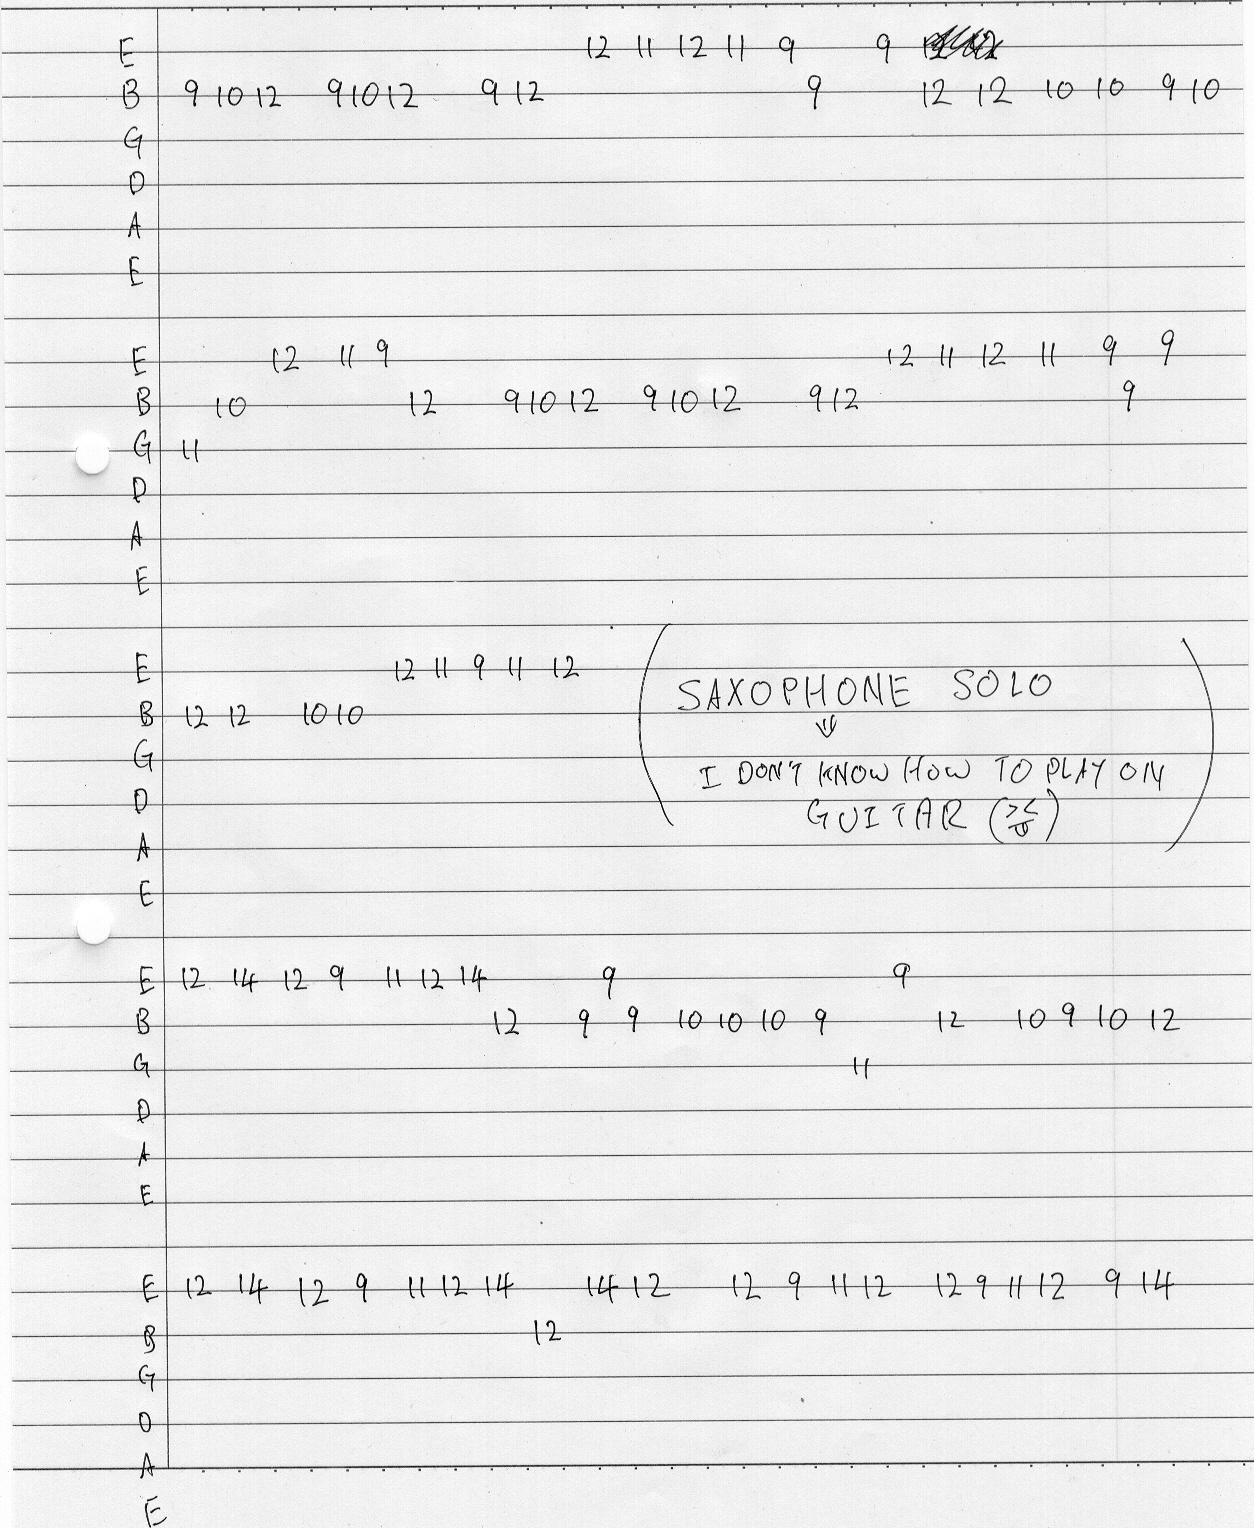 E 12 11 12 11 9 9
B 9 10 12 9 10 12 9 12 9 12 12 10 10 9 10
G
D
A
E
E 12 11 9 12 11 12 11 9 9
B 10 12 9 10 12 9 10 12 9 12 9
G 11
D
A
E
E 12 11 9 11 12
B 12 12 10 10
G
D
A
E
( SAXOPHONE SOLO
⇓
I DON'T KNOW HOW TO PLAY ON
GUITAR (><) )
E 12 14 12 9 11 12 14 9 9
B 12 9 9 10 10 10 9 12 10 9 10 12
G 11
D
A
E
E 12 14 12 9 11 12 14 14 12 12 9 11 12 12 9 11 12 9 14
B 12
G
D
A
E